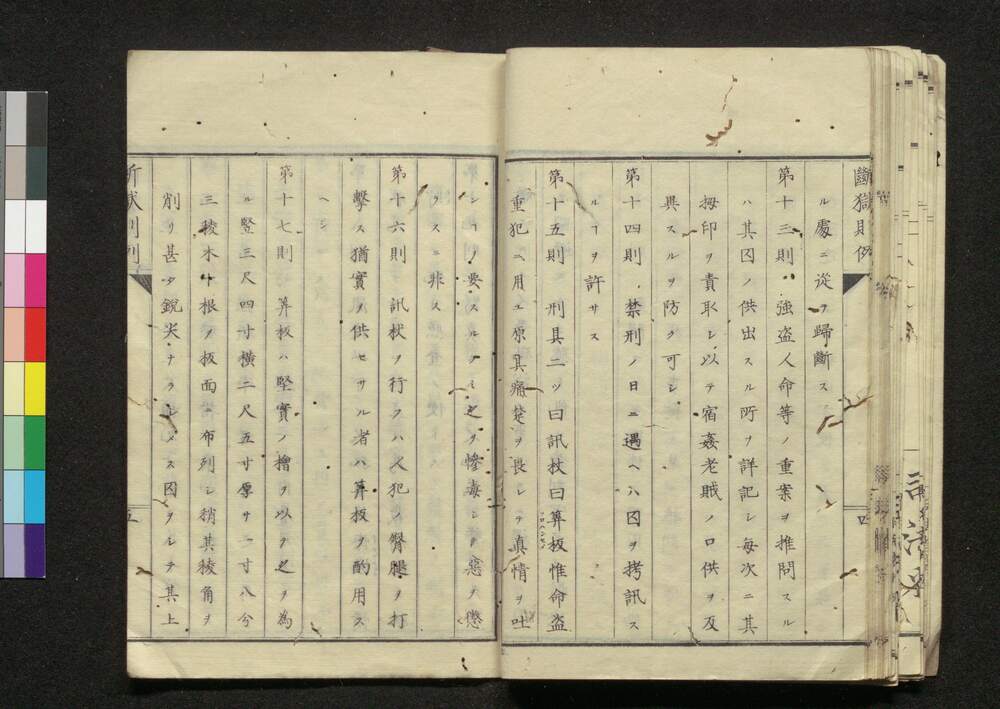 斷獄則例
ル處ニ從ヲ歸斷ス
第十三則 強盗人命等ノ重案ヲ推問スル
ハ其囚ノ供出スル所ヲ詳記シ毎次ニ其
拇印ヲ責取シ以テ宿姦老賊ノ口供ヲ反
異スルヲ防ク可シ
第十四則 禁刑ノ日ニ遇ヘハ囚ヲ拷訊ス
ルヿヲ許サス
第十五則 刑具二ツ曰訊杖曰算板惟命盗
重犯ニ用ユ原其痛楚ヲ畏レテ真情ヲ吐
シムヿヲ要スルノミ之ヲ惨毒シテ惡ヲ懲
ラスニ非ス
第十六則 訊杖ヲ行フハ人犯ノ臀腿ヲ打
撃ス猶實ヲ供セサル者ハ算板ヲ酌用ス
ヘシ
第十七則 算板ハ堅實ノ檜ヲ以テ之ヲ為
ル竪三尺四寸横二尺五寸厚サ一寸八分
三稜木十根ヲ板面ニ布列シ稍其稜角ヲ
削リ甚タ鋭尖ナラシメス囚ヲシテ其上
五